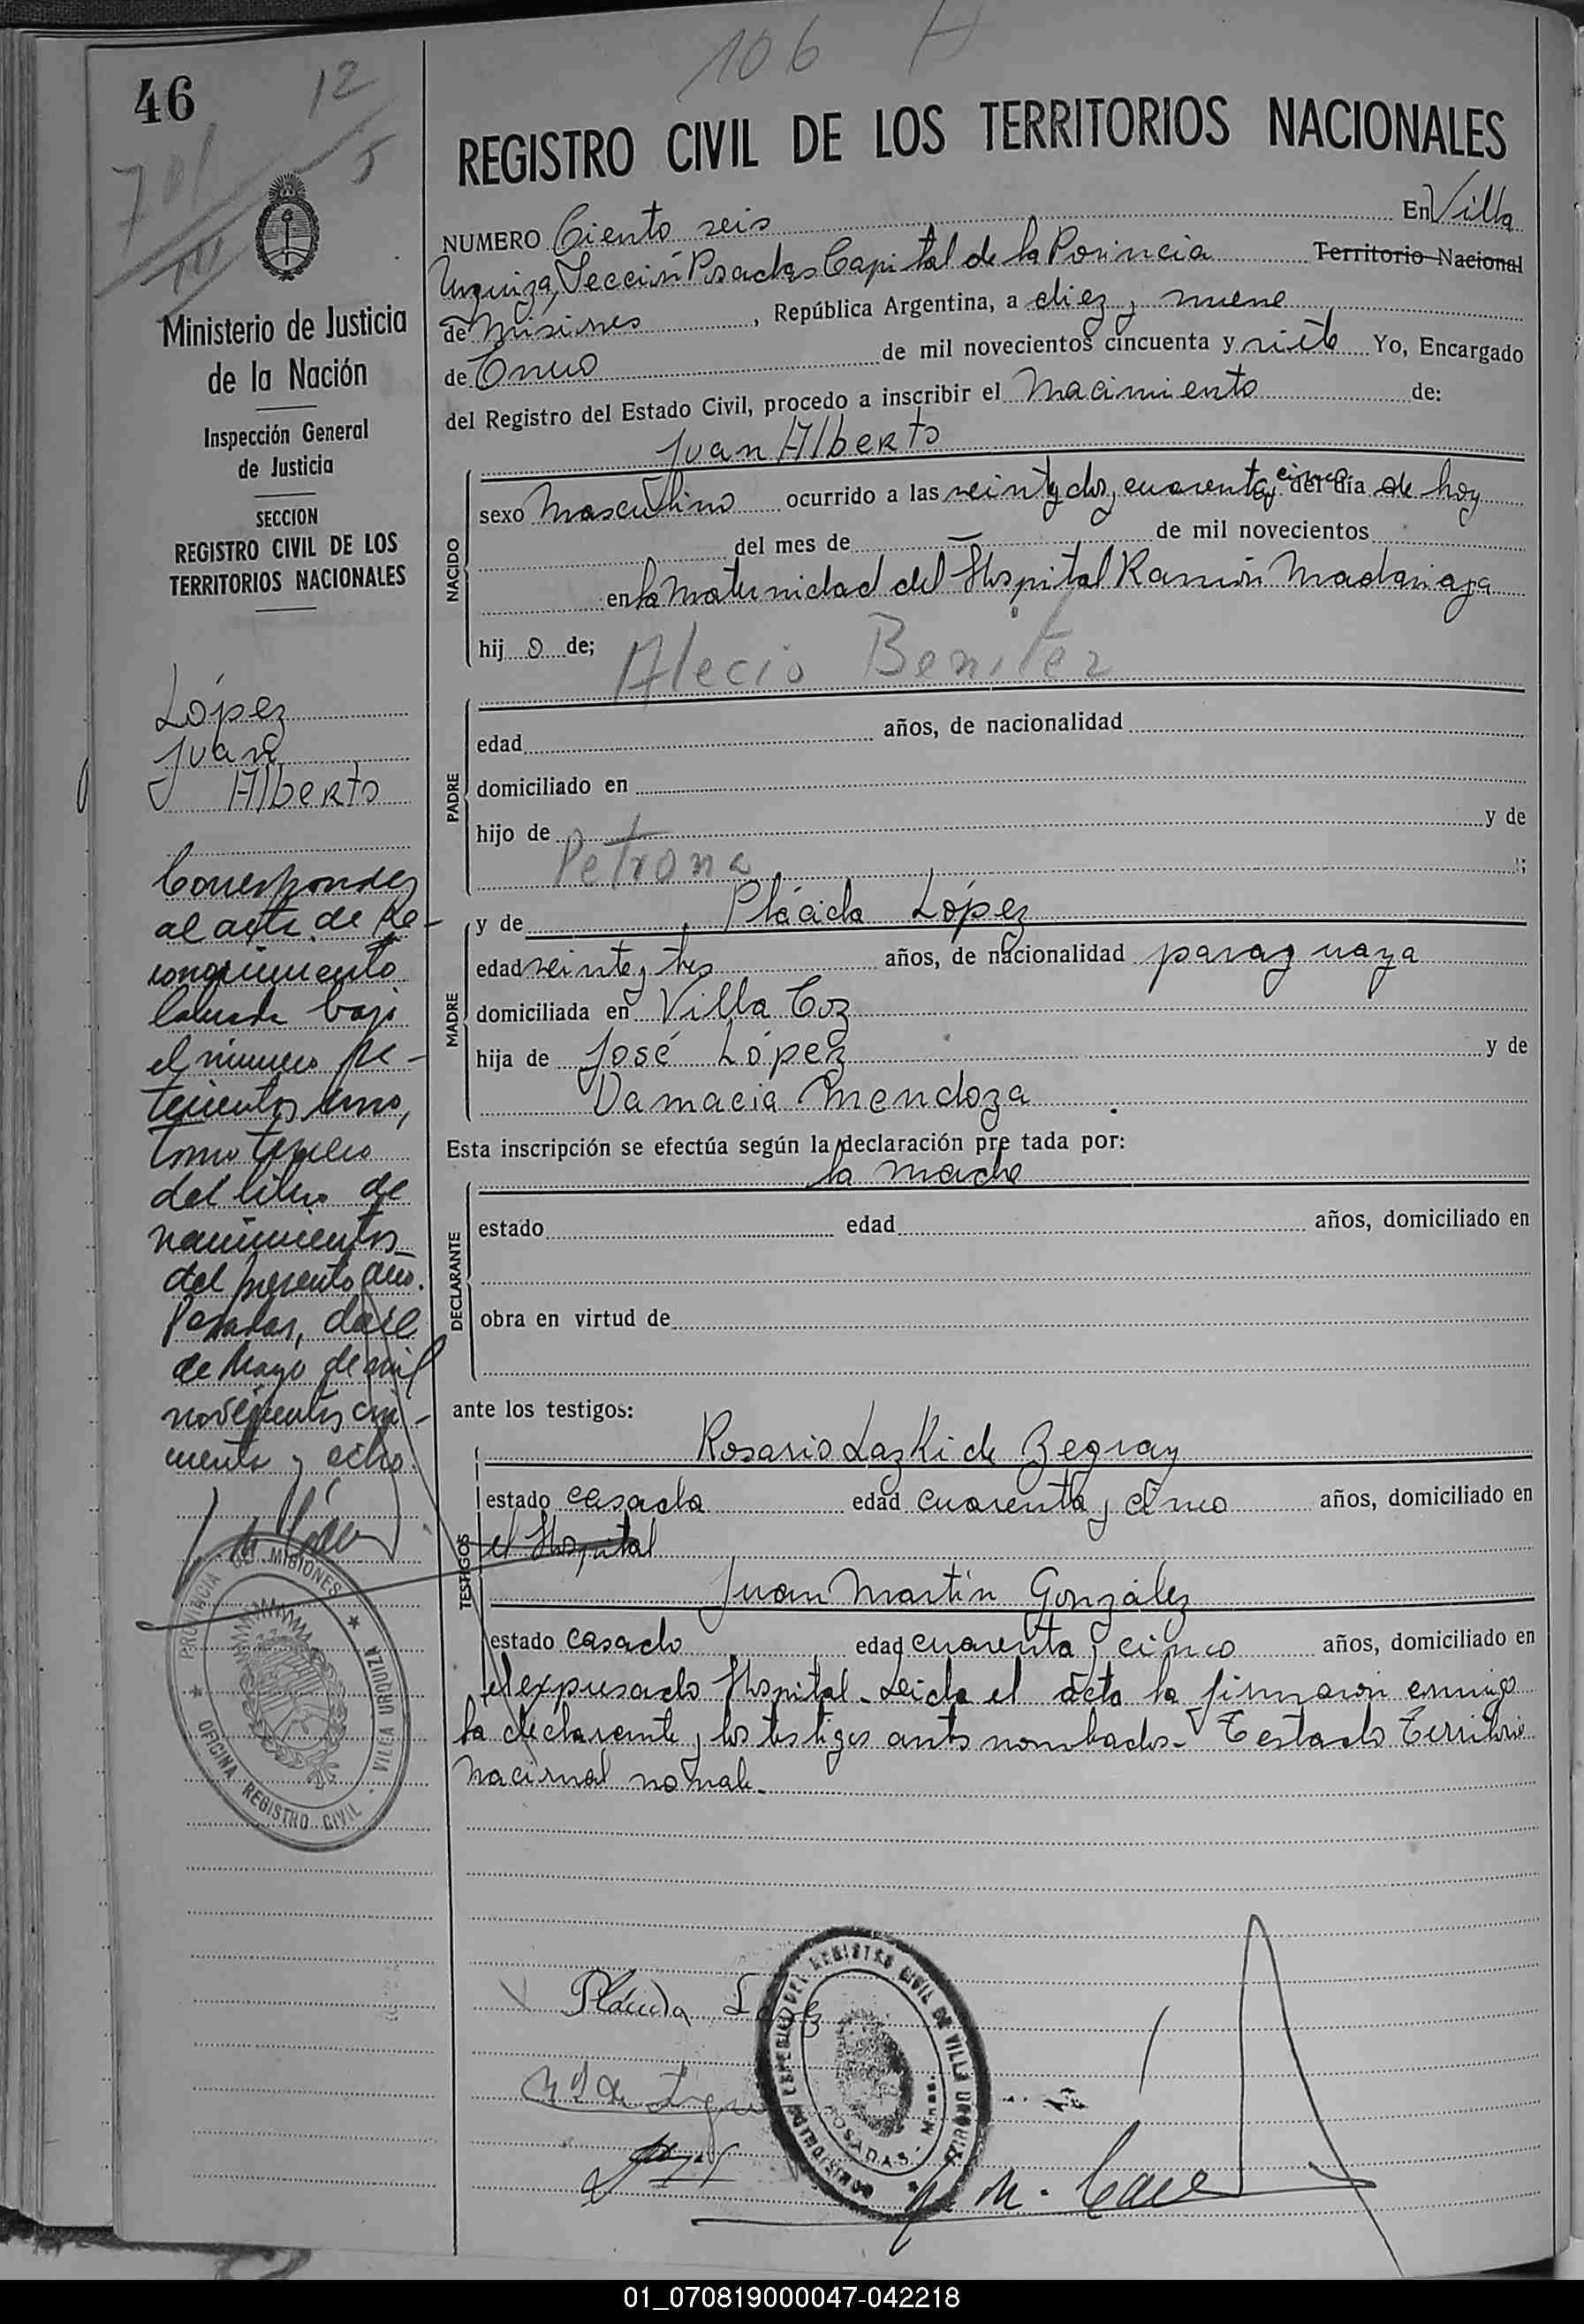 106
46
12
5
701
III
REGISTRO CIVIL DE LOS TERRITORIOS NACIONALES
NUMERO Ciento seis En Villa
Urquiza, Sección Posadas Capital de la Porincia Territorio Nacional
de Misiones, República Argentina, a diez y nueve
de Enero de mil novecientos cincuenta y siete Yo, Encargado
del Registro del Estado Civil, procedo a inscribir el Nacimiento de:
Juan Alberto
NACIDO
sexo Masculino ocurrido a las veinte y dos, cuarenta y cinco del día de hoy
del mes de — de mil novecientos
en la Maternidad del Hospital Ramón Madariaga
hij o de;
Alecio Benitez
PADRE
edad años, de nacionalidad
domiciliado en
hijo de y de
Petrona ;
MADRE
y de Plácida López
edad veinte y tres años, de nacionalidad paraguaya
domiciliada en Villa Coz
hija de José López y de
Damacia Mendoza
Esta inscripción se efectúa según la declaración pre tada por:
la madre
DECLARANTE
estado edad años, domiciliado en
obra en virtud de
ante los testigos:
TESTIGOS
Rosario Laski de Zegray
estado casada edad cuarenta y cinco años, domiciliado en
el Hospital
Juan Martín González
estado casado edad cuarenta y cinco años, domiciliado en
el expresado Hospital. Leida el acta la firmaron conmigo
la declarante y los testigos antes nombrados- Testado Territorio
Nacional no vale.
Plácida López
Ministerio de Justicia
de la Nación
Inspección General
de Justicia
SECCION
REGISTRO CIVIL DE LOS
TERRITORIOS NACIONALES
López
Juan
Alberto
Corresponde
al acta de Re-
conocimiento
labrada bajo
el número se-
tecientos uno,
tomo tercero
del libro de
nacimientos
del presente año.
Posadas, doce
de Mayo de mil
novecientos cin-
cuenta y ocho.
PROVINCIA DE MISIONES
OFICINA REGISTRO CIVIL - VILLA URQUIZA
REGISTRO CIVIL DE VILLA URQUIZA
POSADAS - Mnes.
01_070819000047-042218